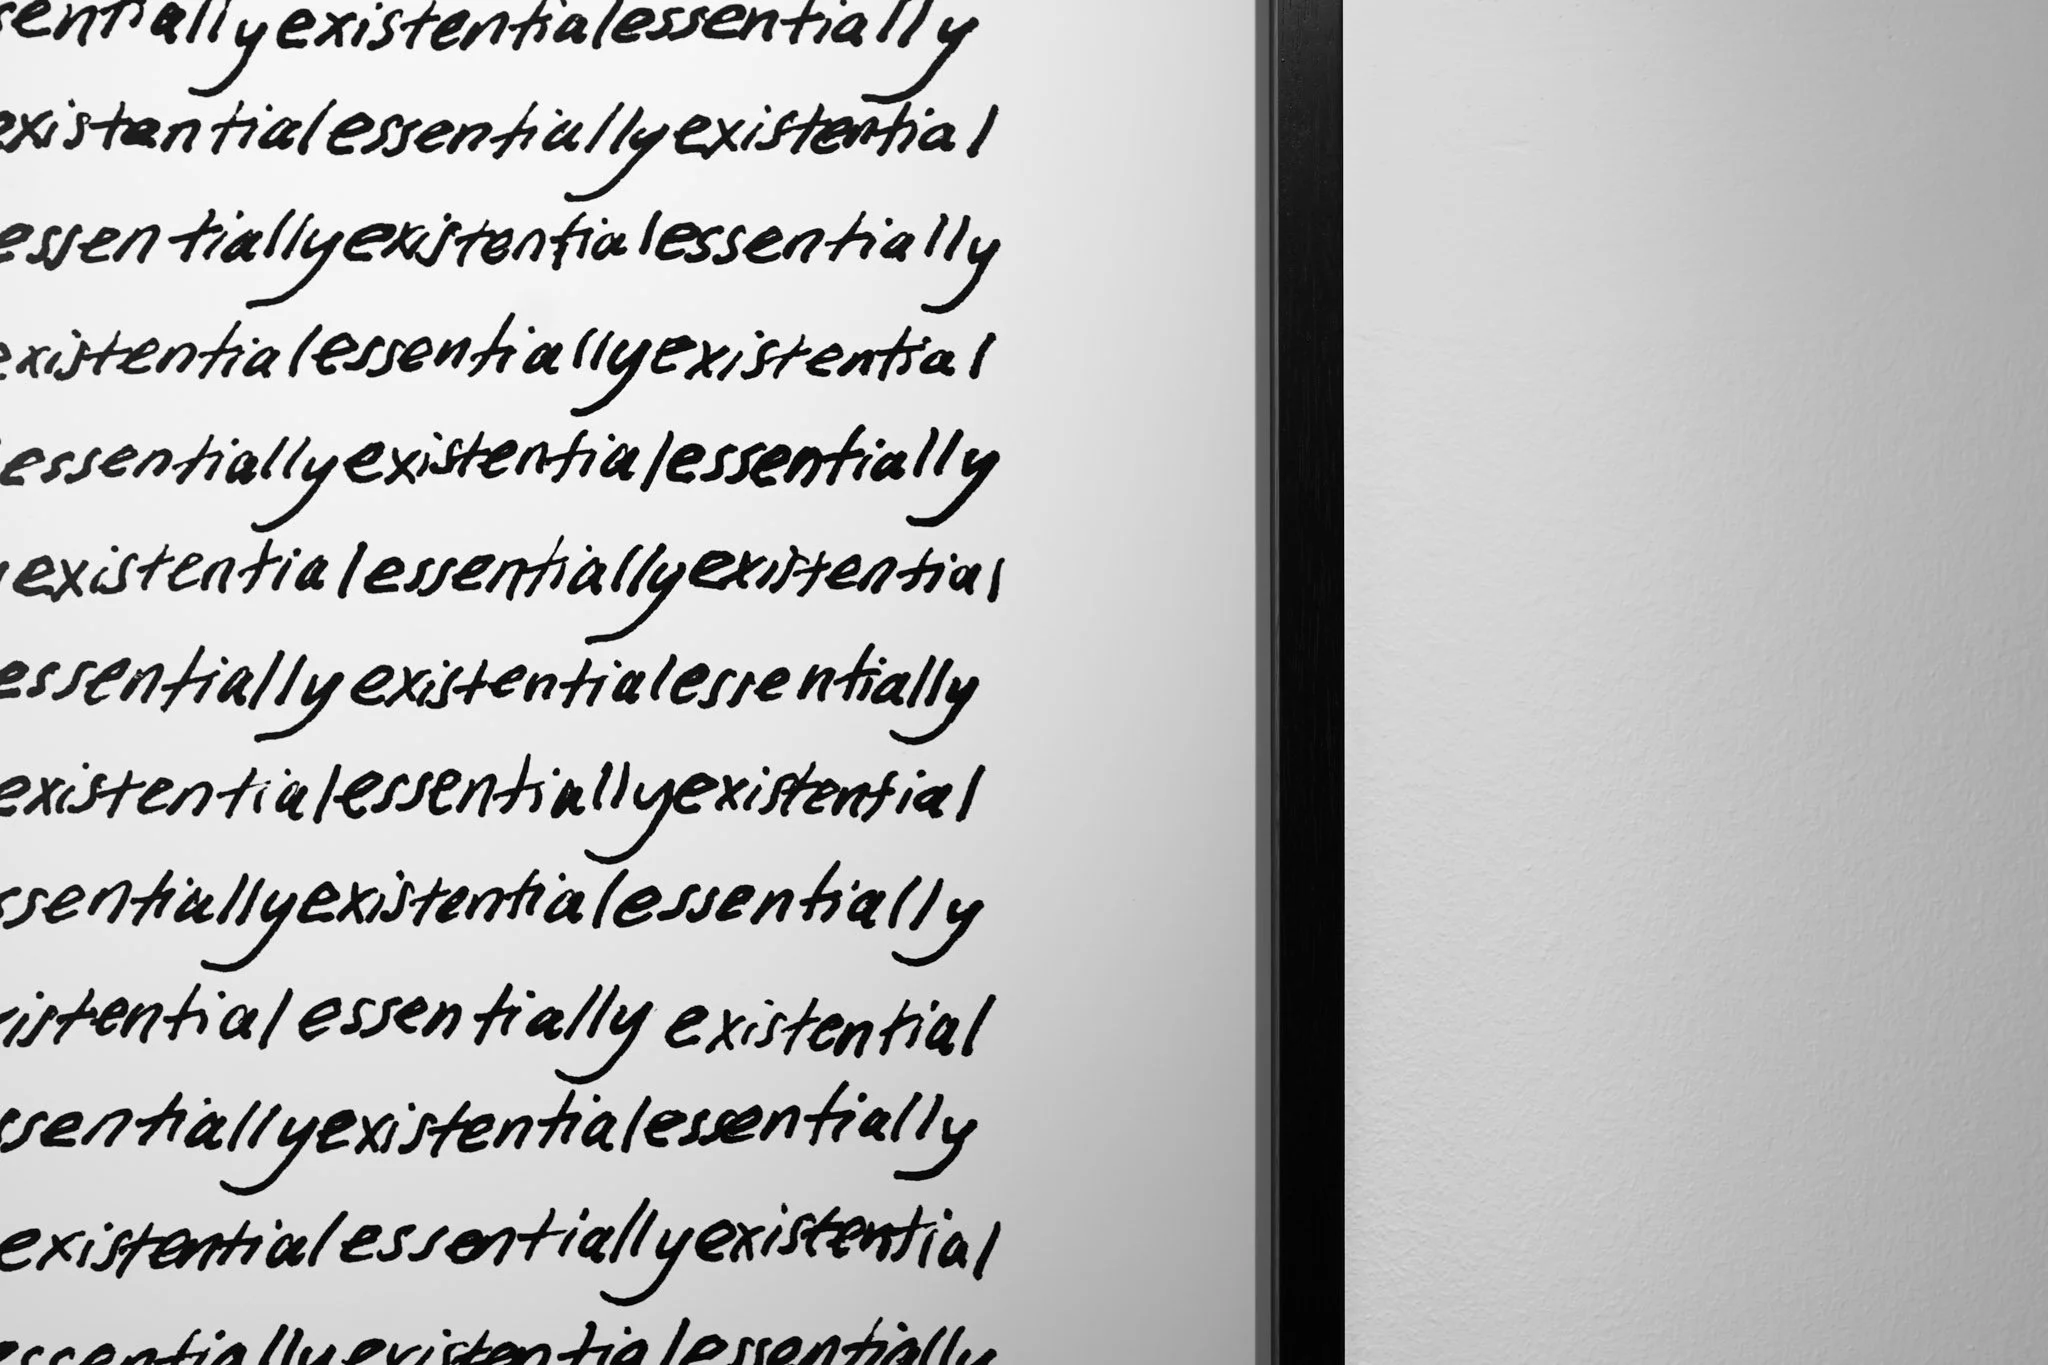 sentiallyexistentialessentially
existentialessentiallyexistential
essentiallyexistentialessentially
existentialessentiallyexistential
essentiallyexistentialessentially
existentialessentiallyexistential
essentiallyexistentialessentially
existentialessentiallyexistential
ssentiallyexistentialessentially
istential essentially existential
ssentiallyexistentialessentially
existentialessentiallyexistential
essentiallyexistentialessentially